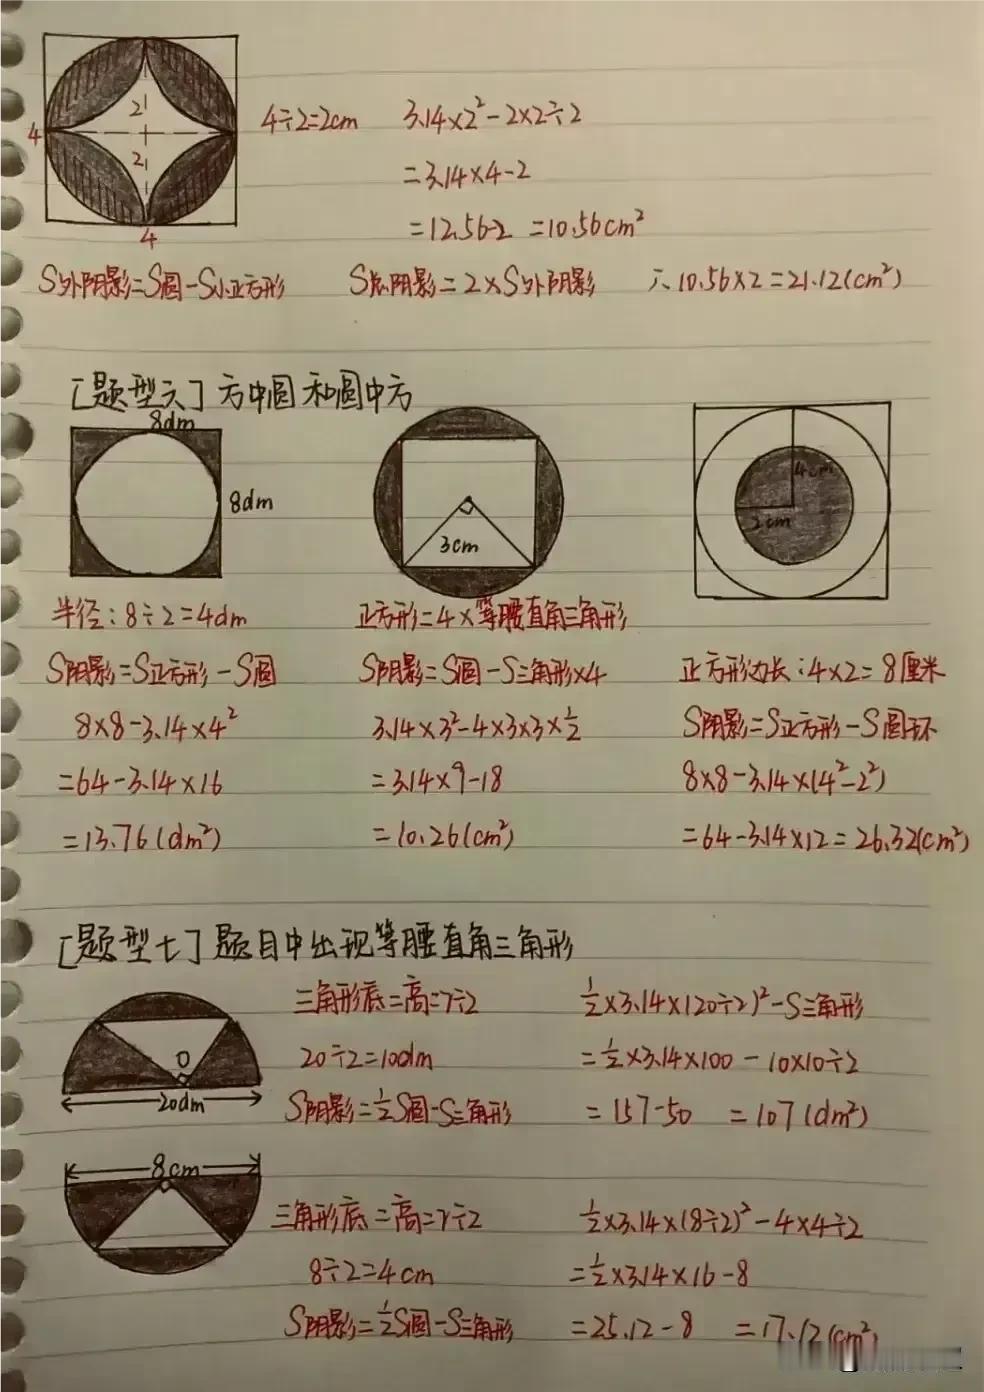 2
4÷2=2cm 3.14×2²-2×2÷2
4
2
=3.14×4-2
4
=12.56-2 =10.56cm²
S外阴影=S圆-S小正方形 S总阴影=2×S外阴影 ∴10.56×2=21.12(cm²)
[题型六]方中圆和圆中方
8dm
8dm
3cm
4cm
2cm
半径:8÷2=4dm 正方形=4×等腰直角三角形
S阴影=S正方形-S圆 S阴影=S圆-S三角形×4 正方形边长:4×2=8厘米
8×8-3.14×4² 3.14×3²-4×3×3×½ S阴影=S正方形-S圆环
=64-3.14×16 =3.14×9-18 8×8-3.14×(4²-2²)
=13.76(dm²) =10.26(cm²) =64-3.14×12=26.32(cm²)
[题型七]题目中出现等腰直角三角形
三角形底=高=r÷2 ½×3.14×(20÷2)²-S三角形
O
20÷2=10dm =½×3.14×100-10×10÷2
20dm
S阴影=½S圆-S三角形 =157-50 =107(dm²)
8cm
三角形底=高=r÷2 ½×3.14×(8÷2)²-4×4÷2
8÷2=4cm =½×3.14×16-8
S阴影=½S圆-S三角形 =25.12-8 =17.12(cm²)